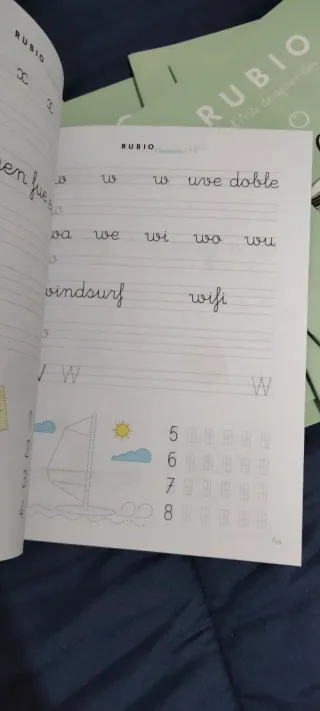 RUBIO
RUBIO
x
x
RUBIO
w w w uve doble
wa we wi wo wu
windsurf wifi
W W W
5
6
7
8